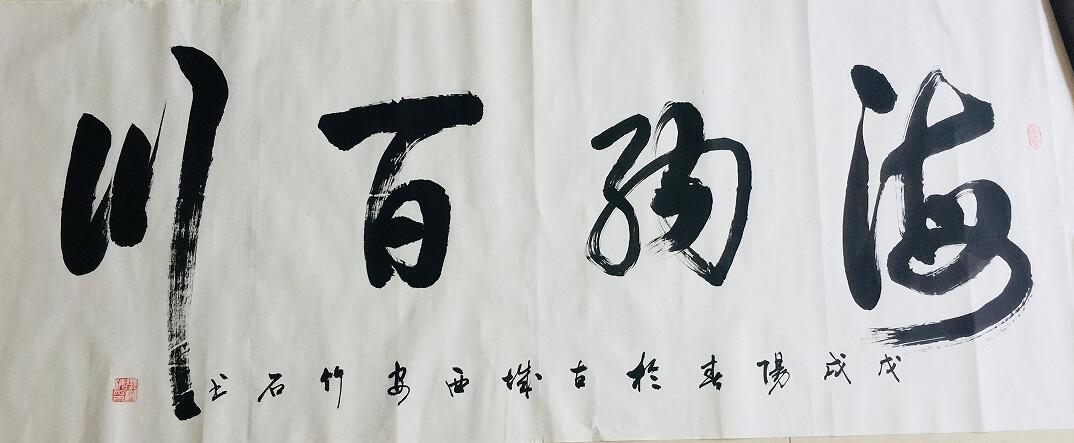 海纳百川
戊戌陽春於古城西安竹石书